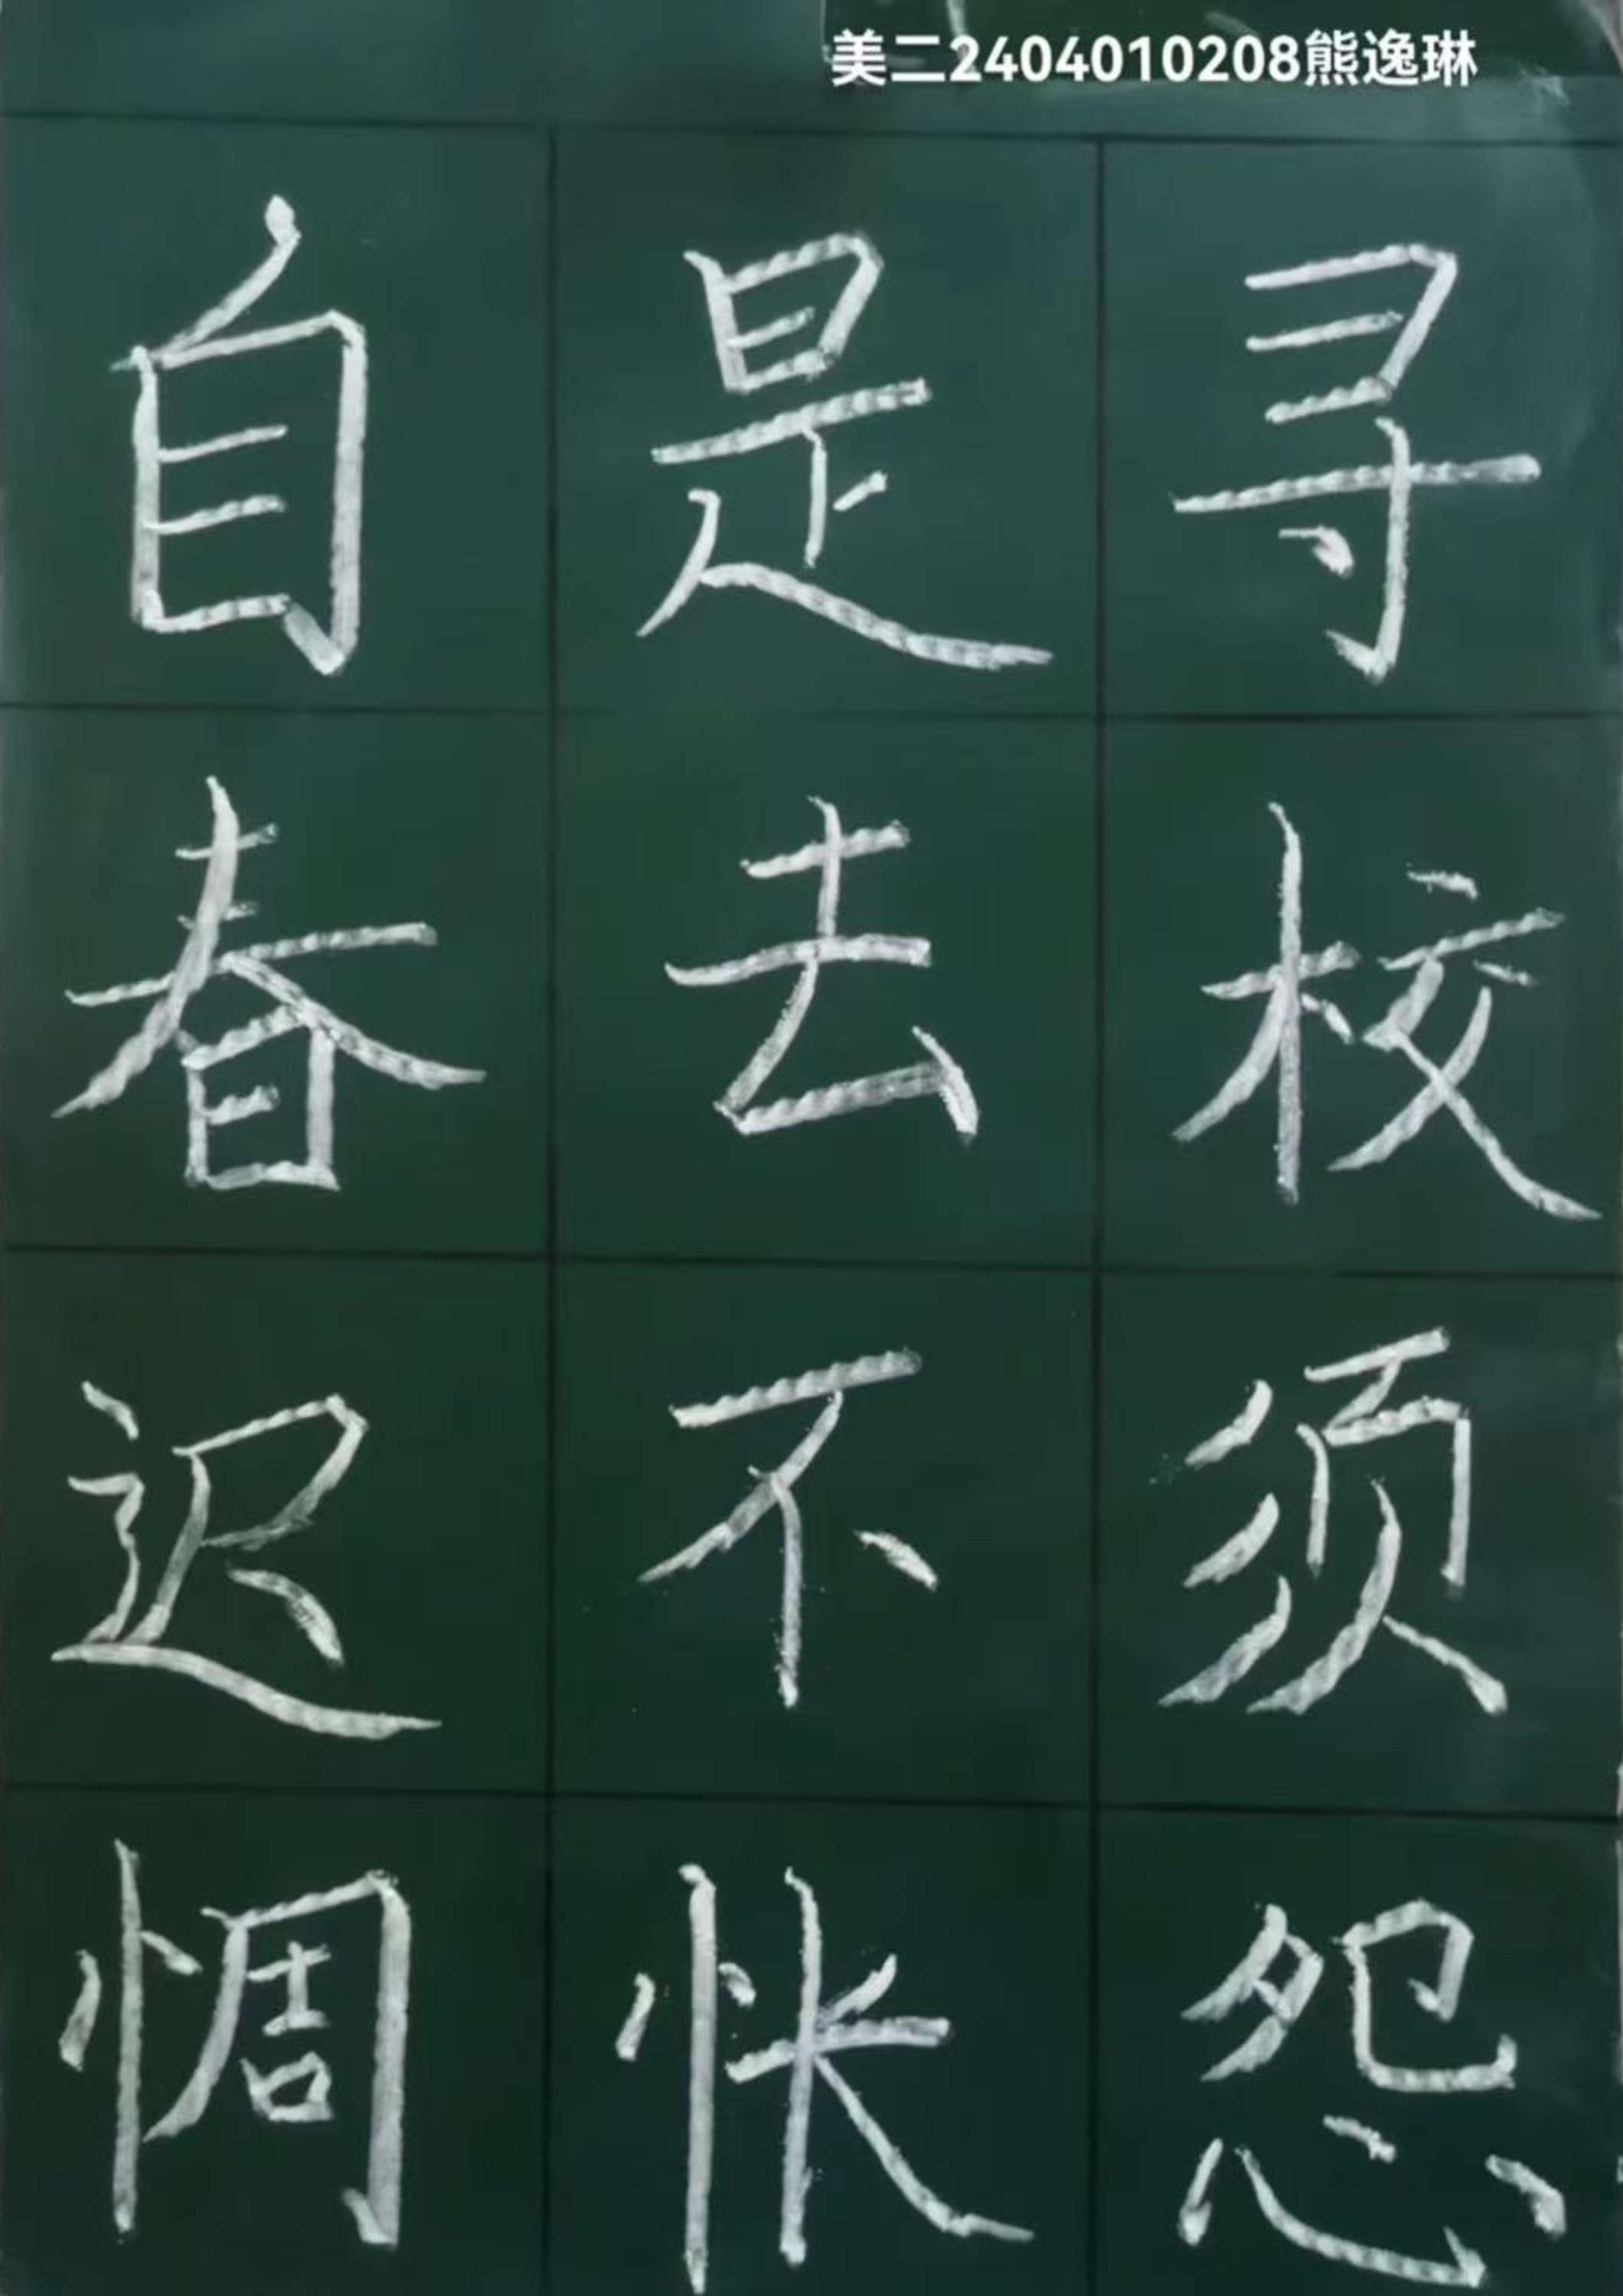 美二2404010208熊逸琳
自是寻
春去校
迟不须
惆怅怨